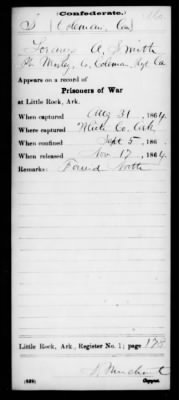 (Confederate.)
S (Coleman, Cav) Mo.
A. Smith
Co. Coleman, Rgt Ca
Appears on a record of
Prisoners of War
at Little Rock, Ark.
When captured Aug 31, 1864.
Where captured White Co. Ark
When confined Sept 5, 186 .
When released Nov 17, 1864
Remarks: Forwd North
Little Rock, Ark., Register No. 1; page 178
(639) Copyist.